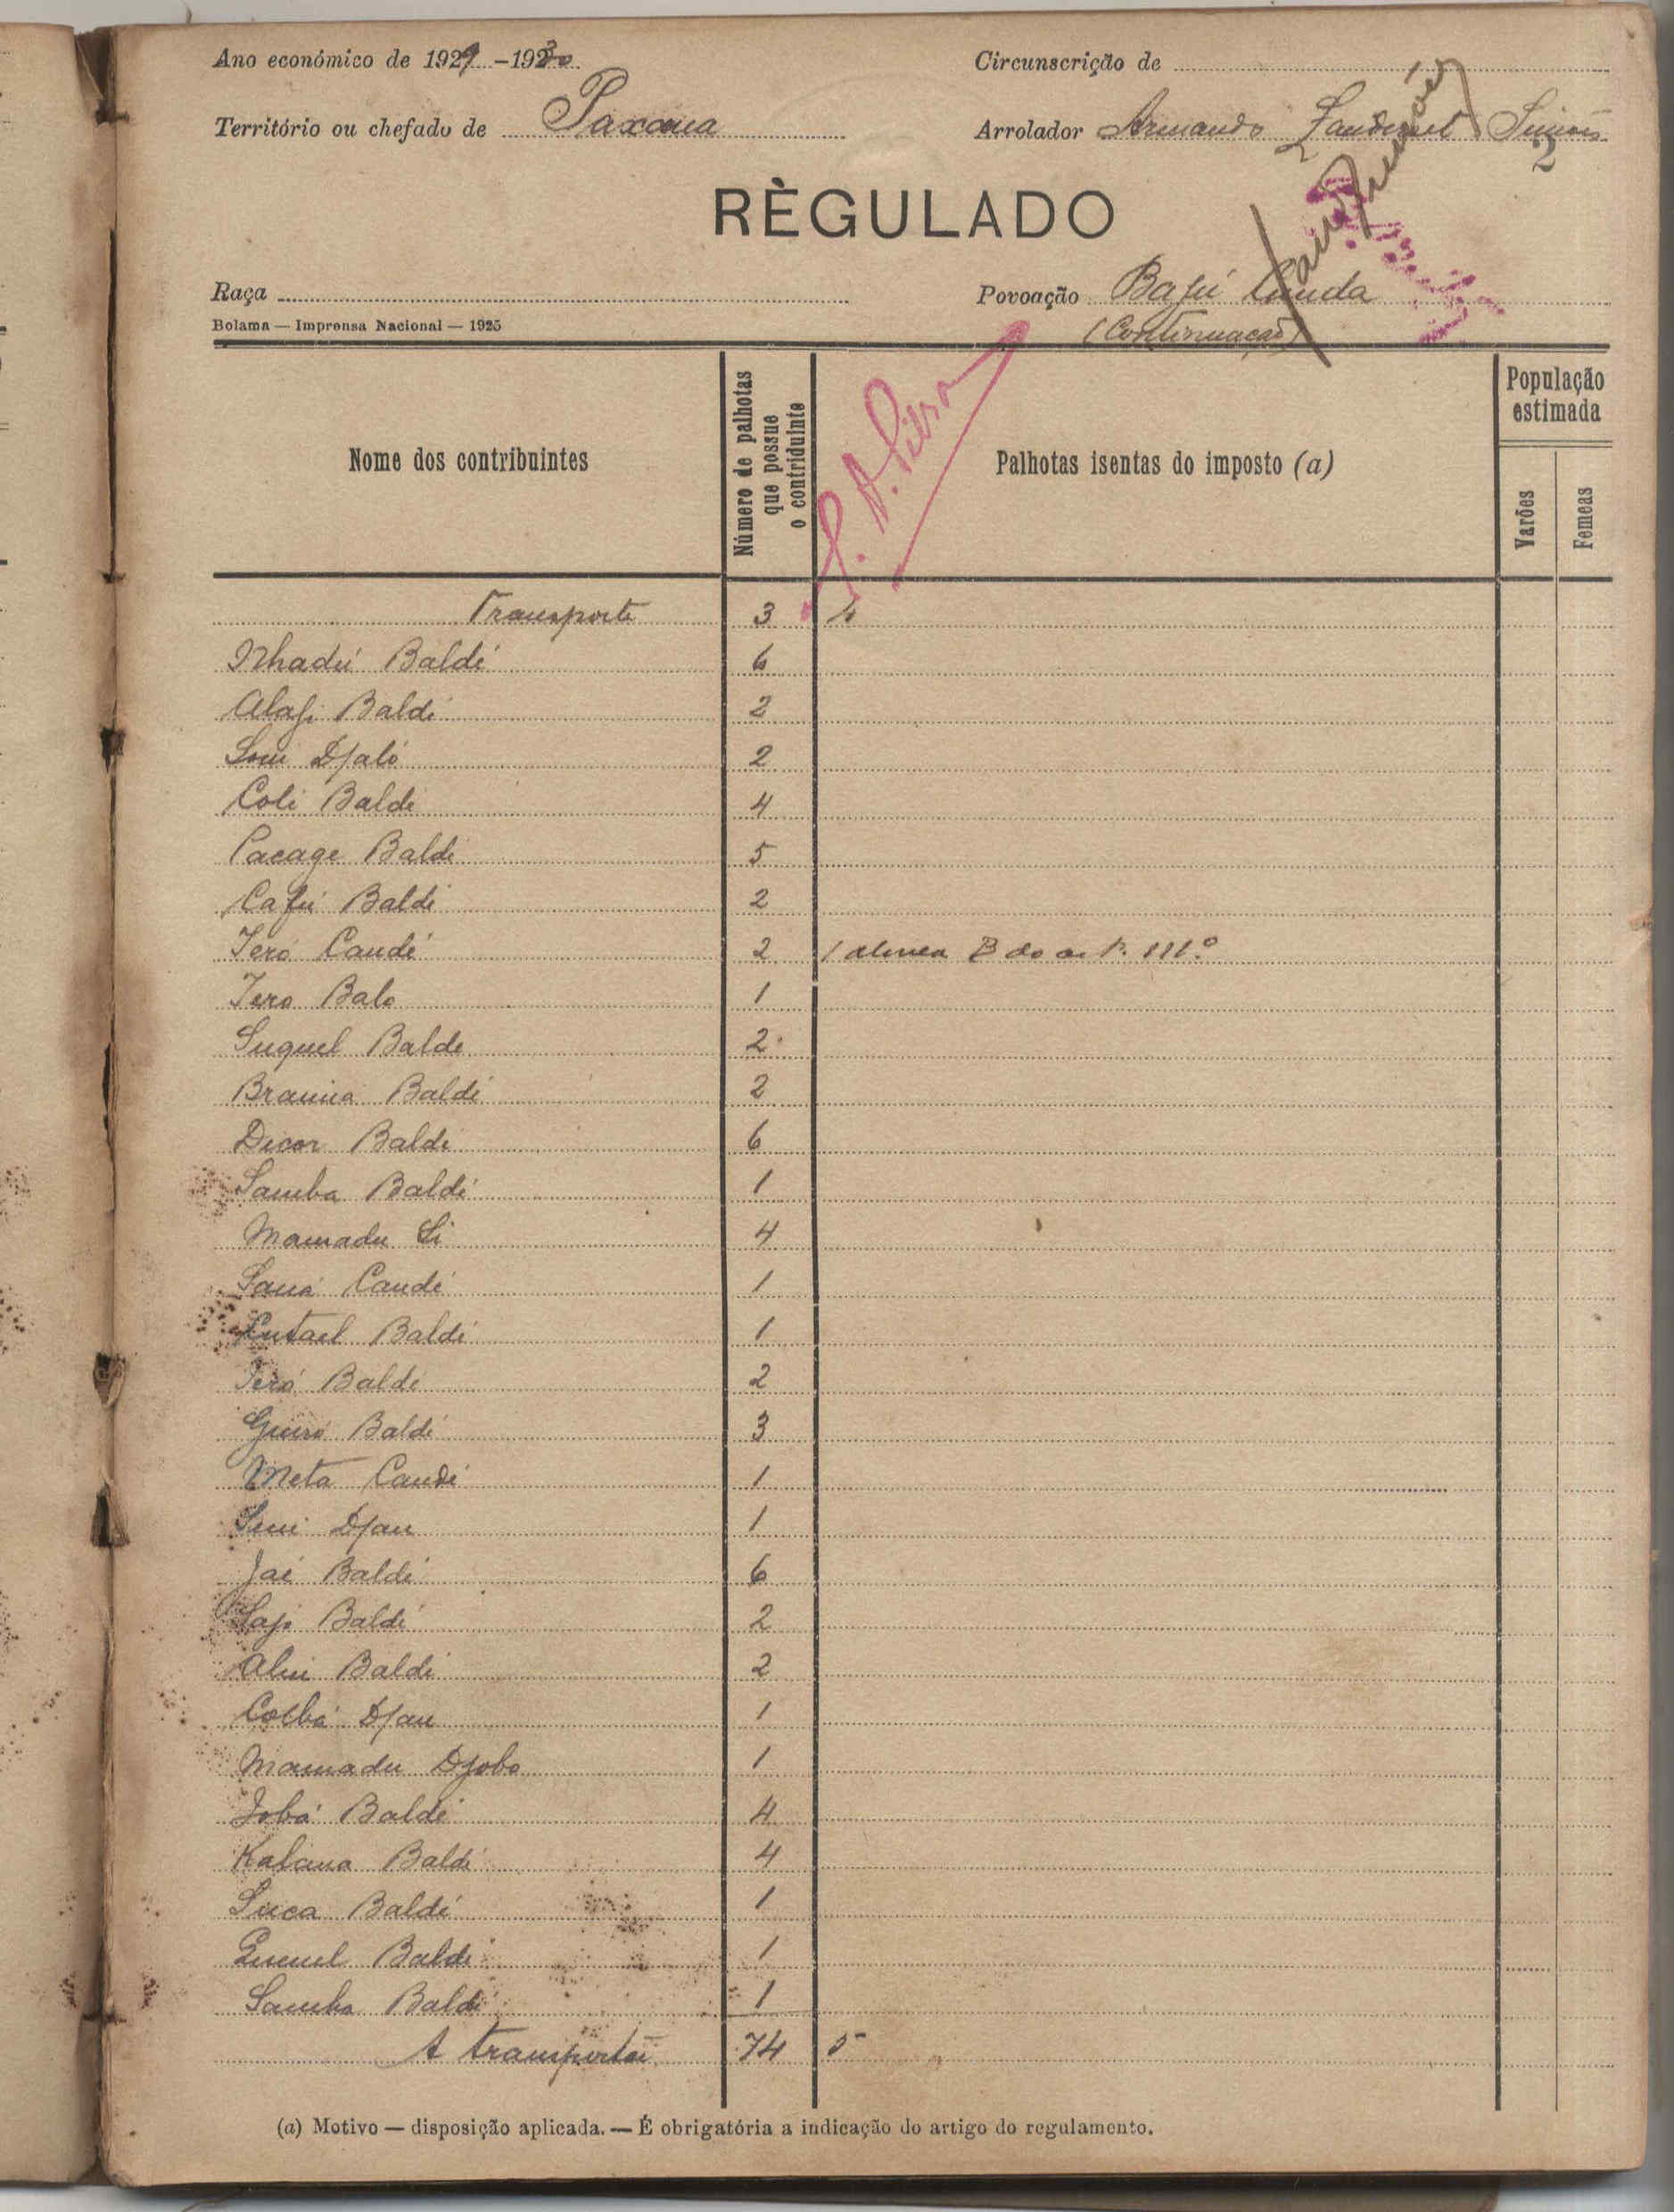 Ano económico de 1929-1930
Circunscrição de
Território ou chefado de
Arrolador Armando Simões
2
RÈGULADO
Raça
Povoação
Bolama — Imprensa Nacional — 1925
(Continuação)
Nome dos contribuintes
Número de palhotas que possue o contriduinte
Palhotas isentas do imposto (a)
População estimada
Varões
Femeas
Transporte 3 4
Nhadú Baldé 6
Alafi Baldé 2
Djaló 2
Coli Baldé 4
Pacage Baldé 5
Cafú Baldé 2
Iero Candé 2 1 alinea B do art. 111.º
Iero Balo 1
Suquel Balde 2
Braima Baldé 2
Dicor Baldé 6
Samba Baldé 1
Mamadu Si 4
Saná Candé 1
Baldé 1
Ieró Baldé 2
Baldé 3
Meta Candé 1
Djau 1
Jaé Baldé 6
Baldé 2
Baldé 2
Djau 1
Mamadu Djobo 1
Jobó Baldé 4
Baldé 4
Baldé 1
Baldé 1
Samba Baldé 1
A transportar 74 5
(a) Motivo — disposição aplicada. — É obrigatória a indicação do artigo do regulamento.